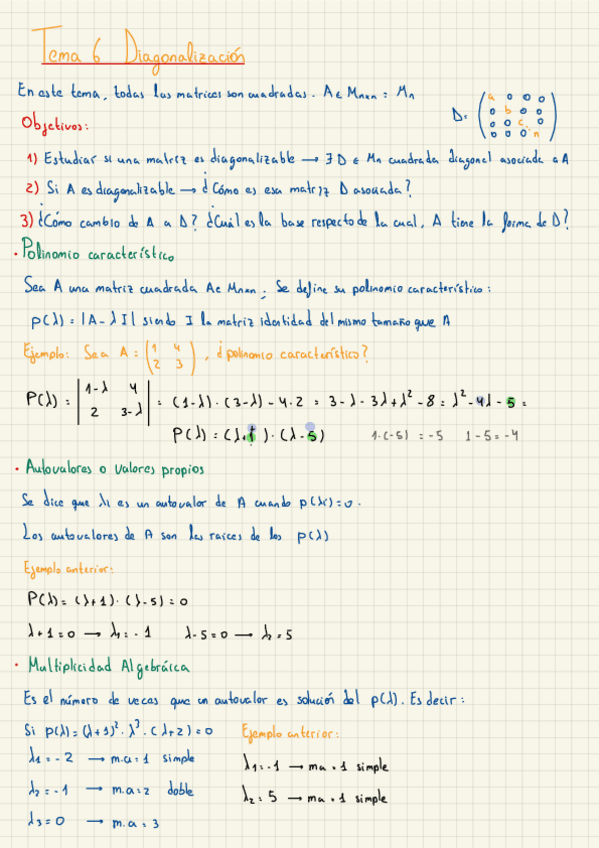 Tema 6 Diagonalización
En este tema, todas las matrices son cuadradas. A ∈ Mnxn = Mn
D = ( a 0 0 0
0 b 0 0
0 0 c. 0
0 0 0 .n )
Objetivos:
1) Estudiar si una matriz es diagonalizable → ∃ D ∈ Mn cuadrada diagonal asociada a A
2) Si A es diagonalizable → ¿Cómo es esa matriz D asociada?
3) ¿Cómo cambio de A a D? ¿Cuál es la base respecto de la cual, A tiene la forma de D?
· Polinomio característico
Sea A una matriz cuadrada A ∈ Mnxn. Se define su polinomio característico:
p(λ) = |A - λ I| siendo I la matriz identidad del mismo tamaño que A
Ejemplo: Sea A = ( 1 4
2 3 ), ¿polinomio característico?
P(λ) = | 1-λ 4
2 3-λ | = (1-λ)·(3-λ) - 4·2 = 3 - λ - 3λ + λ² - 8 = λ² - 4λ - 5 =
P(λ) = (λ+1)·(λ-5) 1·(-5) = -5 1-5 = -4
· Autovalores o valores propios
Se dice que λi es un autovalor de A cuando p(λi) = 0.
Los autovalores de A son las raíces de los p(λ)
Ejemplo anterior:
P(λ) = (λ+1)·(λ-5) = 0
λ+1 = 0 → λ1 = -1 λ-5 = 0 → λ2 = 5
· Multiplicidad Algebráica
Es el número de veces que un autovalor es solución del p(λ). Es decir:
Si p(λ) = (λ+1)²·λ³·(λ+2) = 0 Ejemplo anterior:
λ1 = -2 → m.a = 1 simple
λ1 = -1 → ma = 1 simple
λ2 = -1 → m.a = 2 doble
λ2 = 5 → ma = 1 simple
λ3 = 0 → m.a = 3